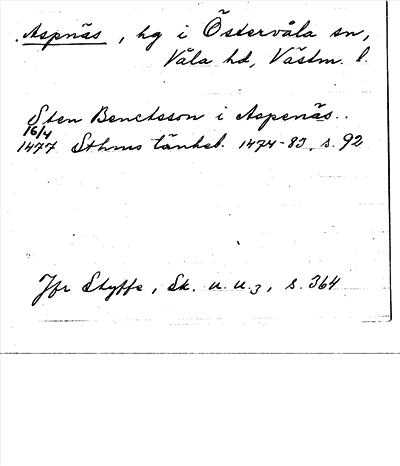 Aspnäs, hg i Östervåla sn,
Våla hd, Västm. l.
Sten Benctsson i Aspenäs..
16/4
1477 Sthms tänkeb. 1474-83, s. 92
Jfr Styffe, Sk. u. u.3, s. 364